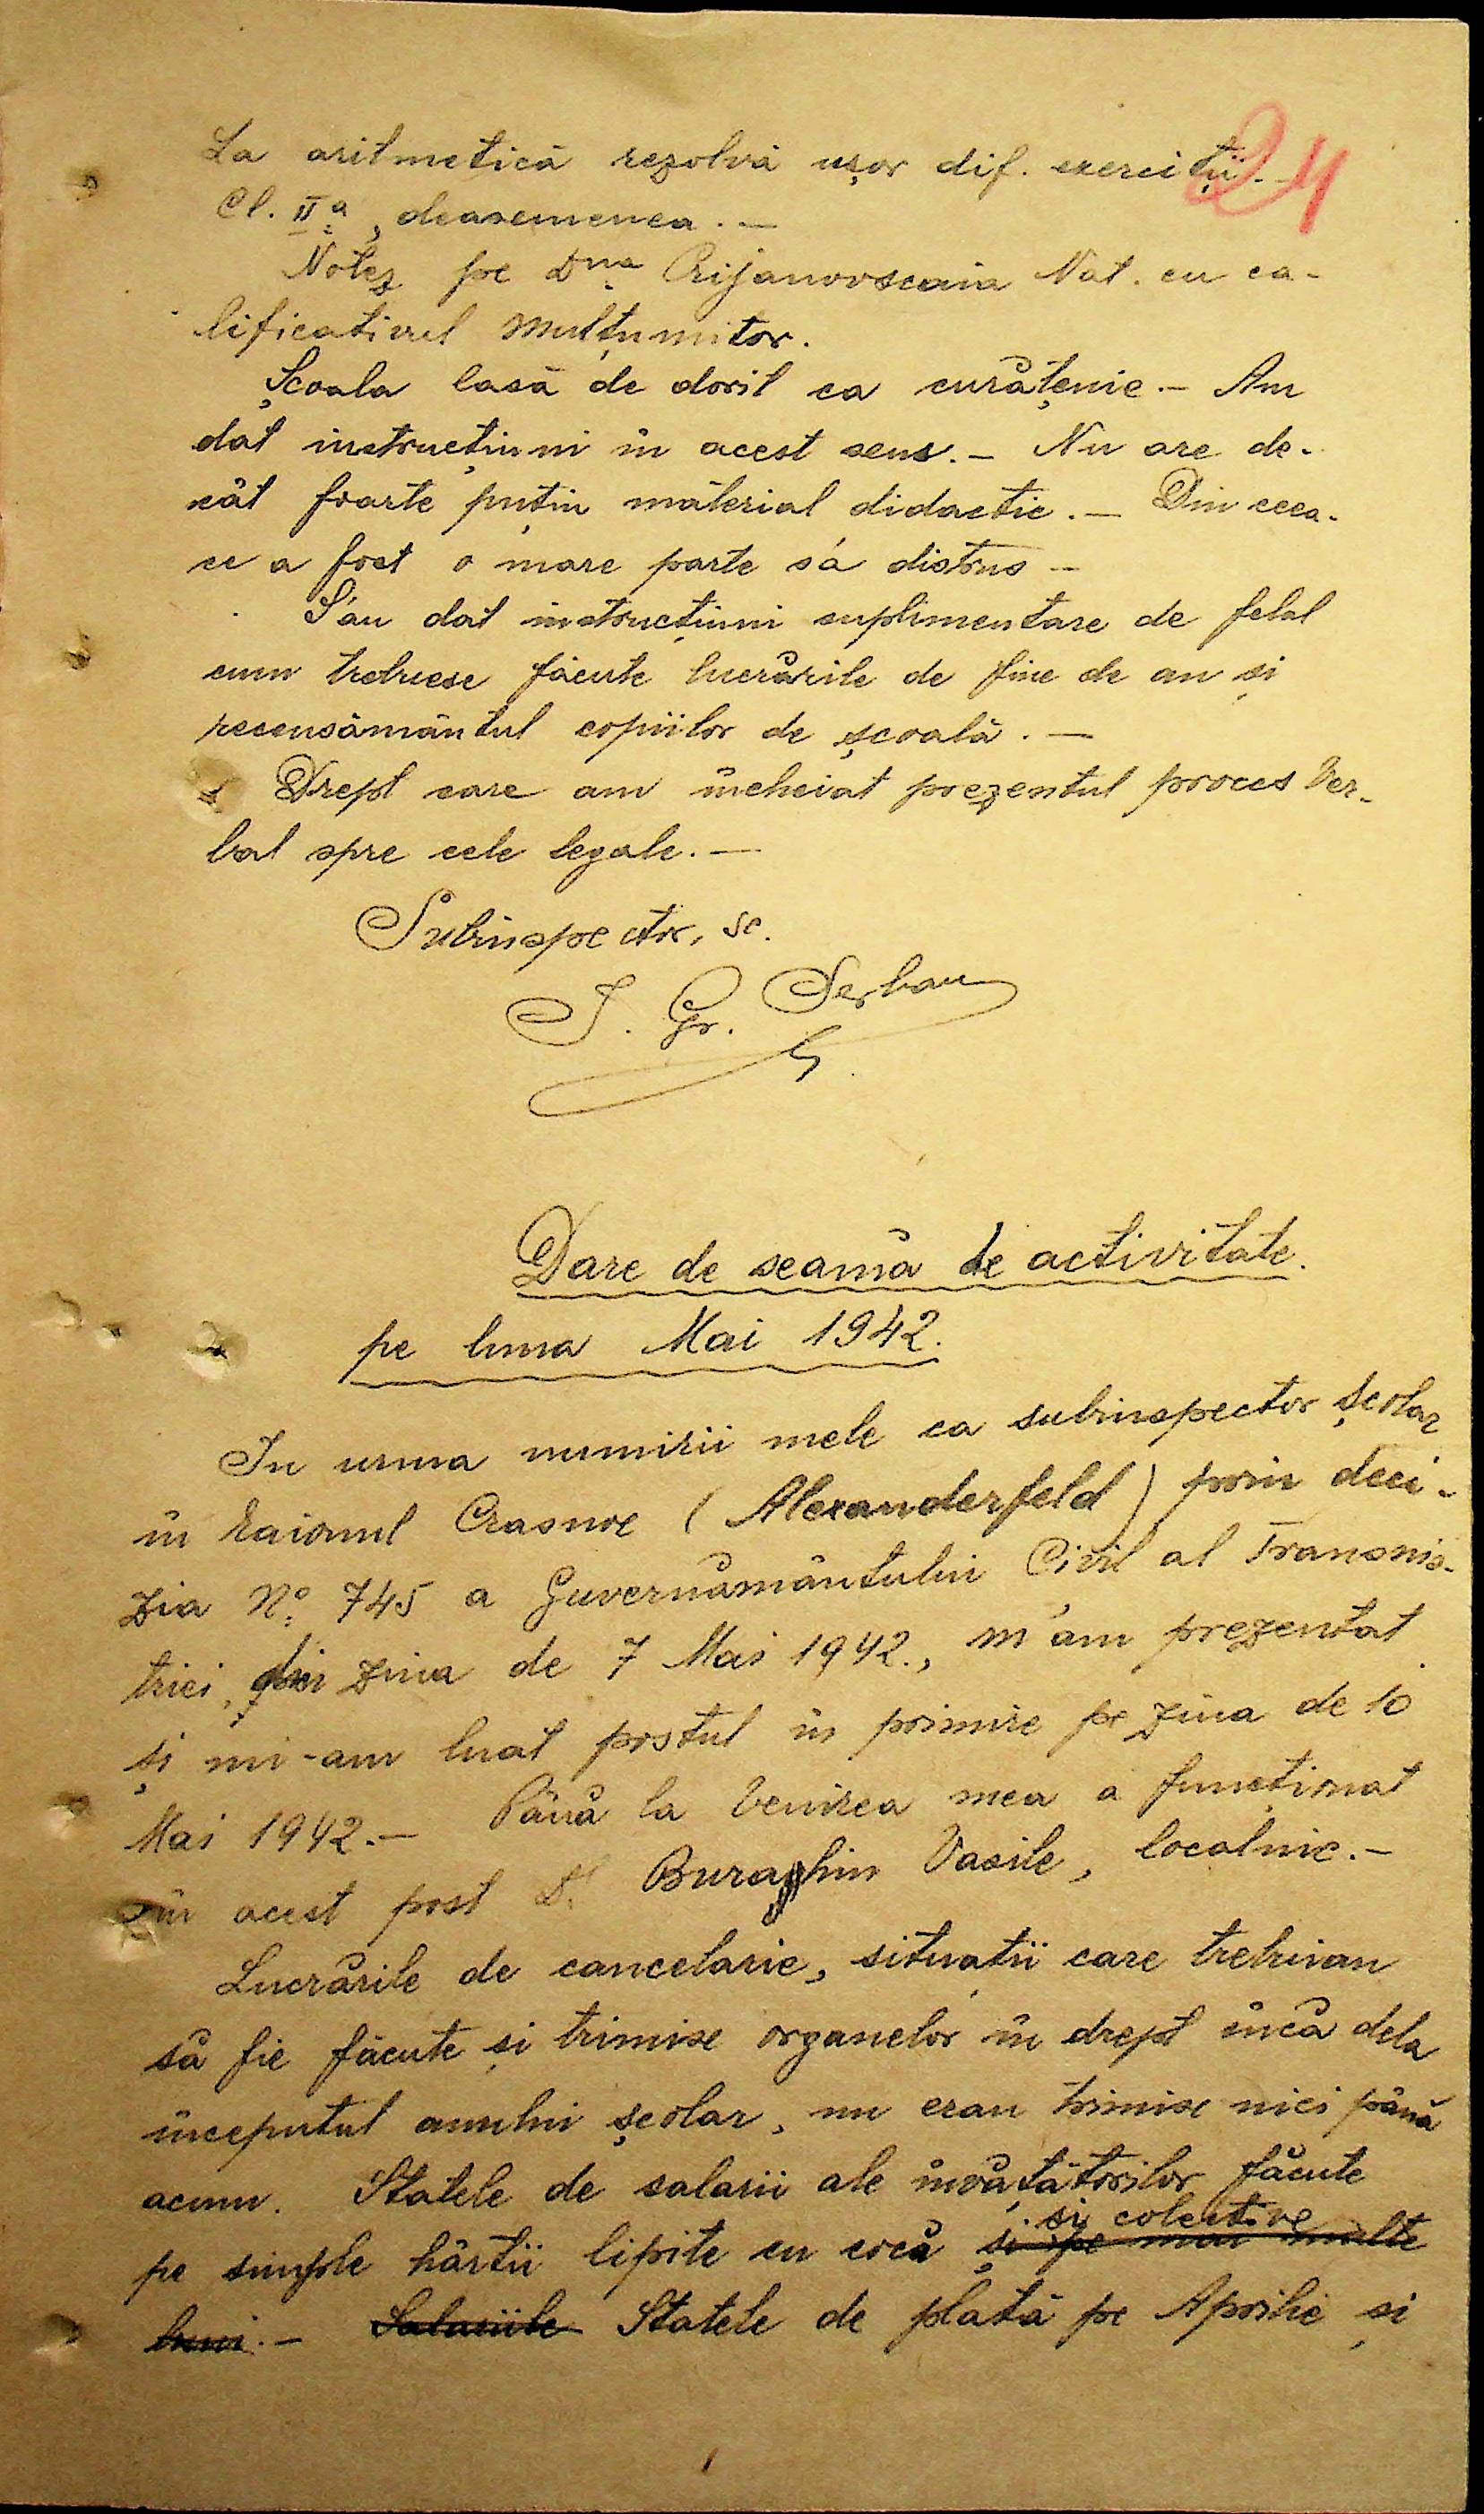 24
La aritmetică rezolvă ușor dif. exerciții. —
Cl. IIa, deasemenea. —
Notez pe Dna Crijanovscaia Nat. cu ca-
lificativul Mulțumitor.
Școala lasă de dorit ca curățenie. — Am
dat instrucțiuni în acest sens. — Nu are de-
cât foarte puțin material didactic. — Din ceea-
ce a fost o mare parte s'a distrus —
S'au dat instrucțiuni suplimentare de felul
cum trebuesc făcute lucrările de fine de an și
recensământul copiilor de școală. —
Drept care am încheiat prezentul proces ver-
bal spre cele legale. —
Subinspector, sc.
I. Gr. Serban
Dare de seamă de activitate.
pe luna Mai 1942.
In urma numirii mele ca subinspector școlar
în raionul Crasnoe (Alexanderfeld) prin deci-
zia No. 745 a Guvernământului Civil al Transnis-
triei, din ziua de 7 Mai 1942., m'am prezentat
și mi-am luat postul în primire pe ziua de 10
Mai 1942. — Până la venirea mea a funcționat
în acest post Dl. Vasile, localnic. —
Lucrările de cancelarie, situații care trebuiau
să fie făcute și trimise organelor în drept încă dela
începutul anului școlar, nu erau trimise nici până
acum. Statele de salarii ale învățătorilor făcute
și colective
pe simple hârtii lipite cu cocă și pe mai multe
luni. — Salariile Statele de plată pe Aprilie și